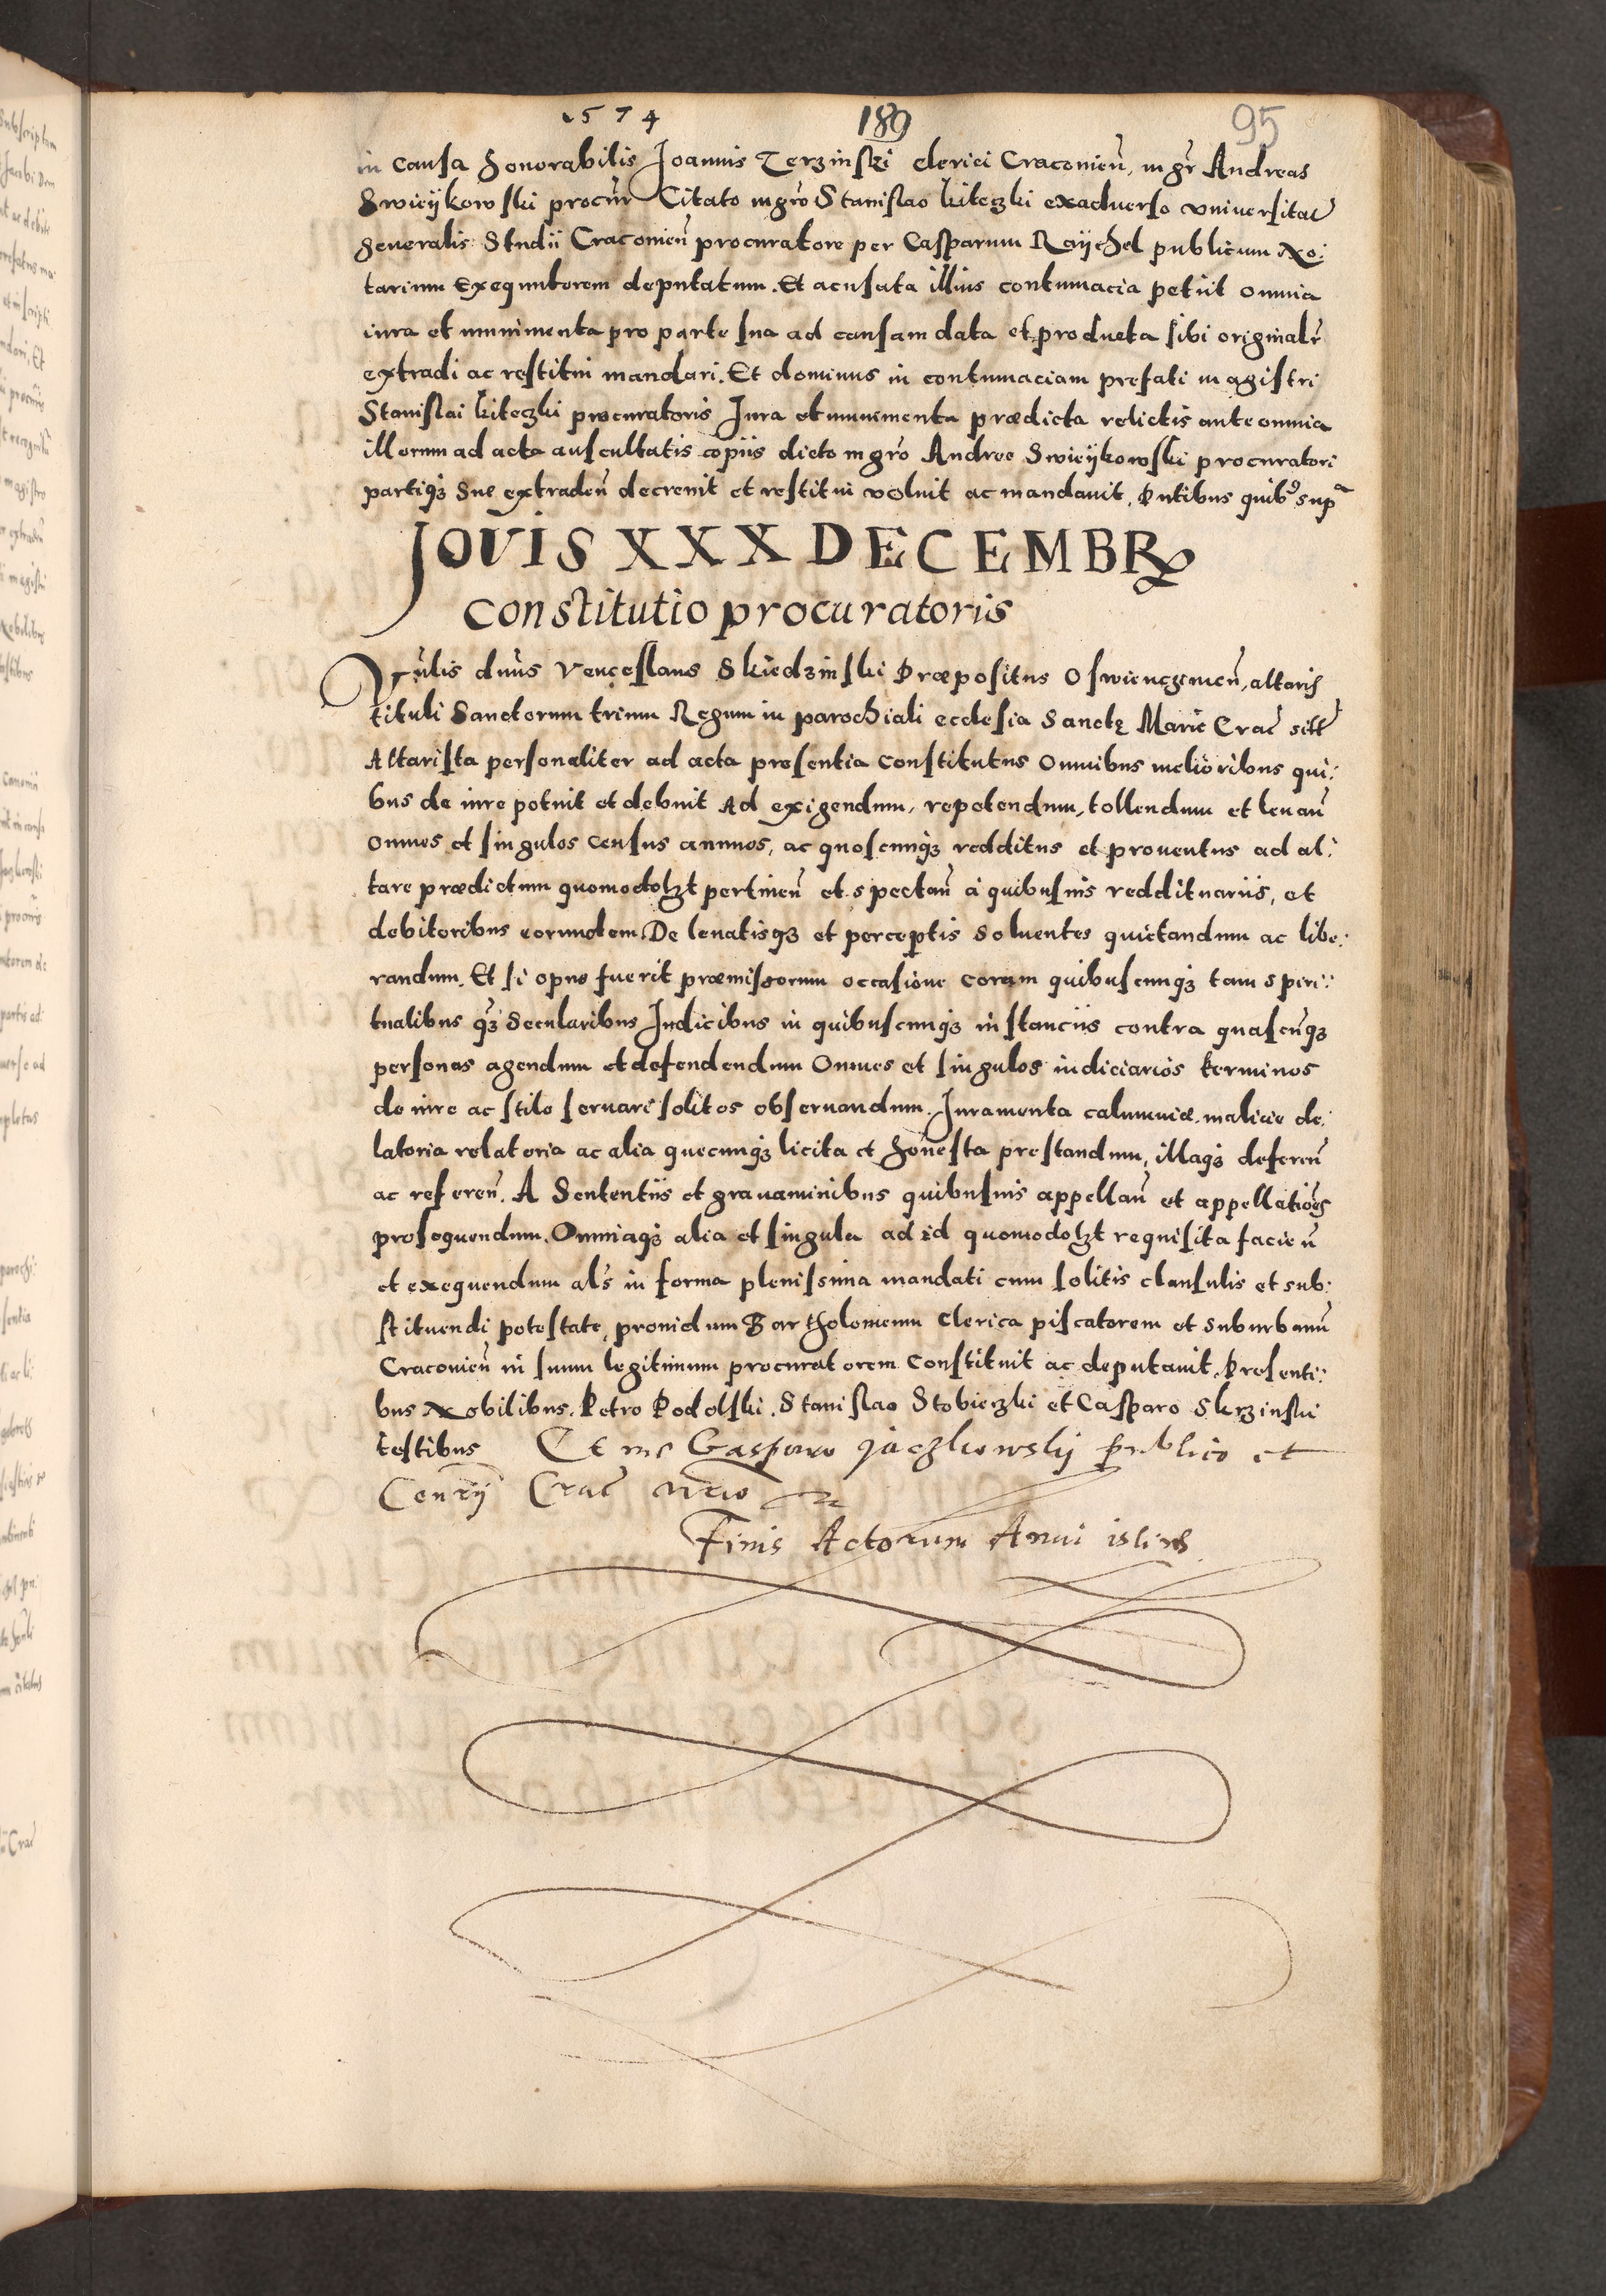 1574 189 95
in causa honorabilis Joannis Terzinski clerici Craconieñ, mgr Andreas
Swieykowski procur Citato mgro Stanislao kiteczki exaduerso vniuersitat
generalis Studii Craconieñ procuratore per Casparum Raychel publicum No:
tarium Exequutorem deputatum. Et acusata illius contumacia petiit omnia
iura et munimenta pro parte sua ad causam data et producta sibi originalr
extradi ac restitui mandari. Et dominus in contumaciam prefati magistri
Stanislai kiteczki procuratoris Jura et munimenta prædicta relictis ante omnia
illorum ad acta auscultatis copiis dicto mgro Andree Swieykowski procuratori
partiq3 sue extradeñ decreuit et restitui voluit ac mandauit. Pntibus quib9 supª
JOVIS XXX DECEMBR
Constitutio procuratoris
Vrulis dnus Venceslaus Skiedzinski Præpositus Oswiencgimeñ, altaris
tituli Sanctorum trium Regum in parochiali ecclesia Sanctę Marie Crac sitt
Altarista personaliter ad acta presentia constitutus Omnibus melioribus qui:
bus de iure potuit et debuit Ad exigendum, repetendum, tollendum et leuañ
omnes et singulos census annuos, ac quoscunq3 redditus et prouentus ad al:
tare prædictum quomodolzt pertineñ et spectañ à quibusuis reddituariis, et
debitoribus eorundem. De leuatisq3 et perceptis Soluentes quietandum ac libe:
randum. Et si opus fuerit præmissorum occasione coram quibuscunq3 tam spiri:
tualibus q3 Secularibus Judicibus in quibuscunq3 instanciis contra quascunq3
personas agendum et defendendum Omnes et singulos iudiciarios terminos
de iure ac stilo seruari solitos obseruandum. Juramenta calumniæ. malicie de:
latoria relatoria ac alia quecunq3 licita et honesta prestandum, illaq3 defereñ
ac refereñ. A Sententiis et grauaminibus quibusuis appellañ et appellatiões
prosequendum. Omniaq3 alia et singula ad id quomodolzt requisita facieñ
et exequendum als in forma plenissima mandati cum solitis clausulis et sub:
stituendi potestate, prouidum Bartholomeum Clerica piscatorem et suburbanũ
Craconieñ in suum legitimum procuratorem constituit ac deputauit. Presenti:
bus Nobilibus. Petro Podolski. Stanislao Stobieczki et Casparo Skrzinski
testibus Et me Gasparo Jaczkowskij Publico et
Conrij Crac nrio
Finis Actorum Anni istius